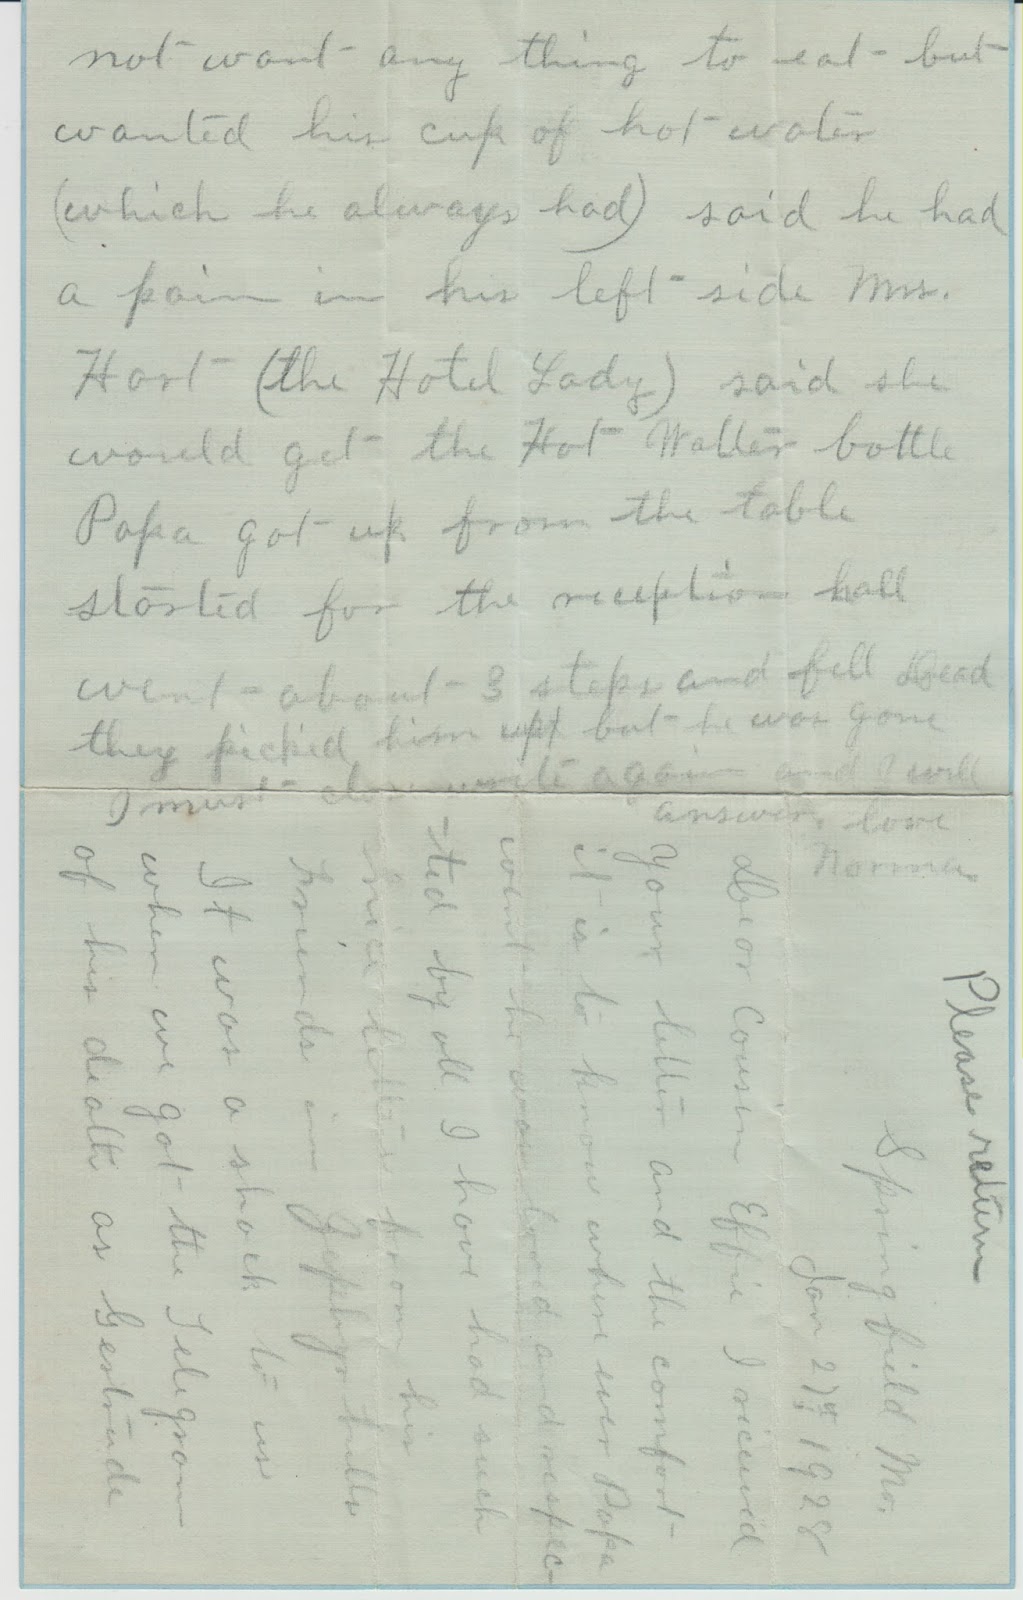 not want any thing to eat but
wanted his cup of hot water
(which he always had) said he had
a pain in his left side Mrs.
Hart (the Hotel Lady) said she
would get the Hot Watter bottle
Papa got up from the table
started for the reception hall
went about 3 steps and fell Dead
they picked him up but he was gone
I must close write again and I will
answer. love
Norma.
Please return
Springfield Mo.
Jan 27th 1928
Dear Cousin Effie I received
Your letter and the comfort
it is to know where ever Papa
went he was loved and respec-
-ted by all I have had such
nice letters from his
friends in Zephyrhills
It was a shock to us
when we got the Telegram
of his death as Gertrude